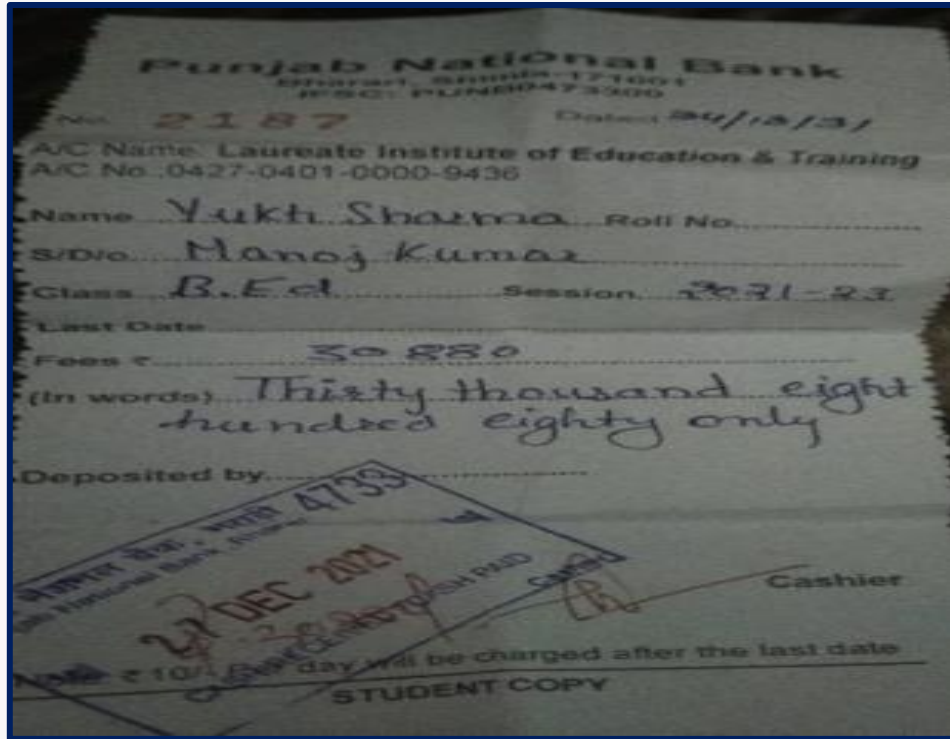 Punjab National Bank
Bharari, Shimla-171001
IFSC: PUNB0473300
No. 2187 Dated
A/C Name. Laureate Institute of Education & Training
A/C No.:0427-0401-0000-9436
Name Yukti Sharma Roll No.
S/D/o. Manoj Kumar
Class B.Ed Session. 2021-23
Last Date
Fees ₹ 30880
(In words) Thirty thousand eight
hundred eighty only
Deposited by
4733
National Bank
DEC 2021
CASH PAID
Cashier
₹ 10/- Per day will be charged after the last date
STUDENT COPY